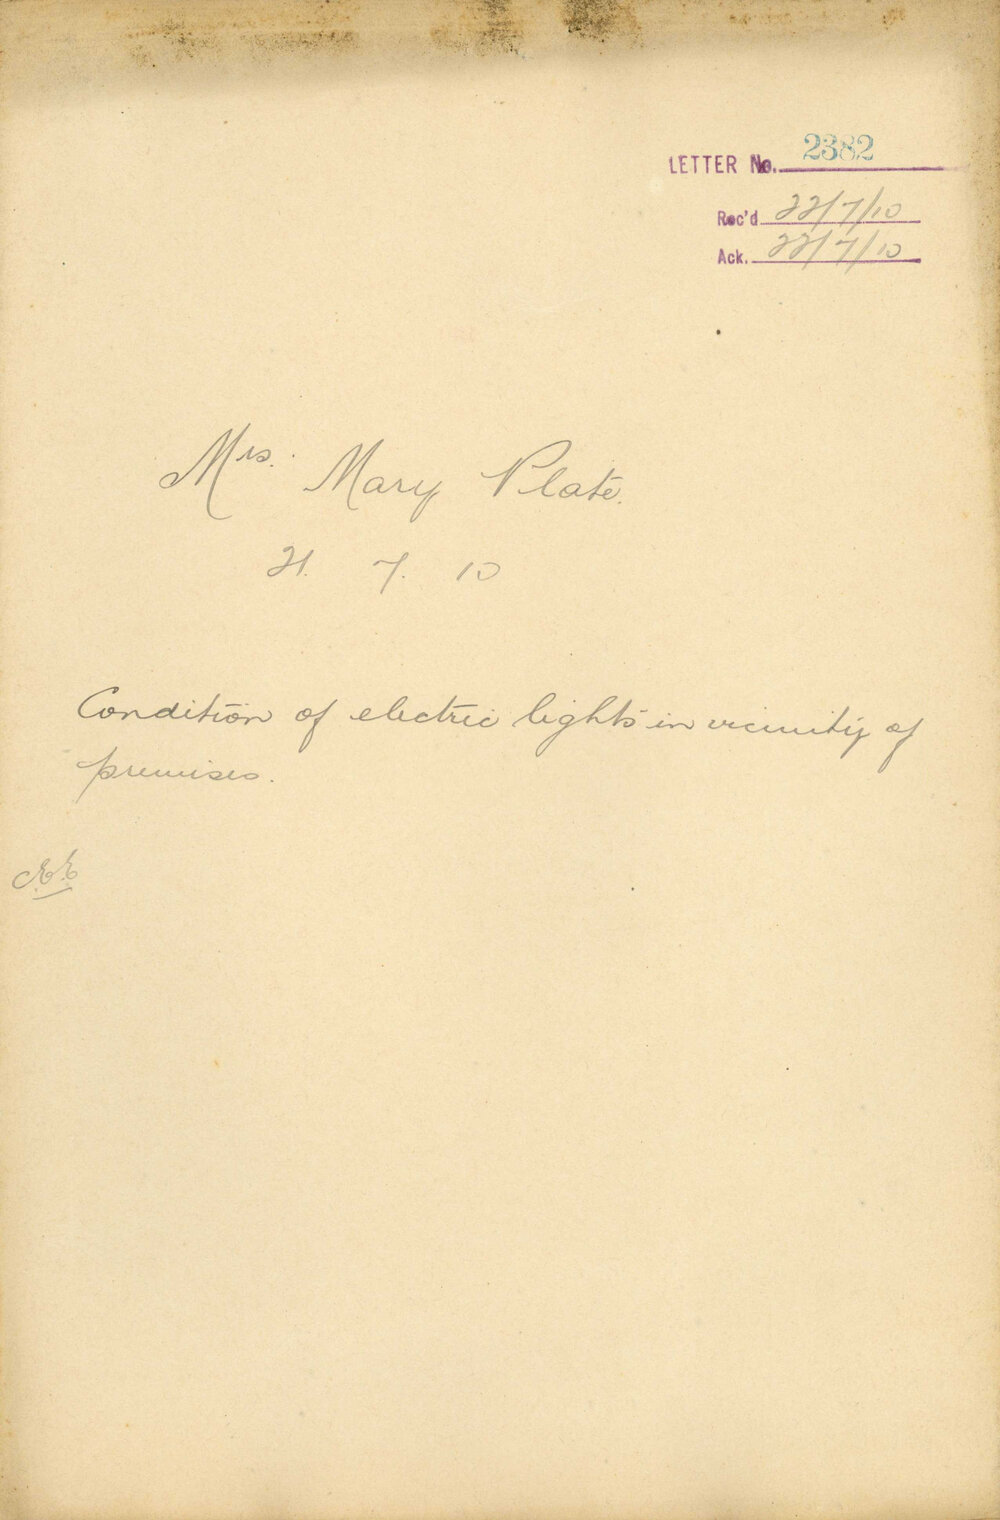 LETTER No. 2382
Rec'd 22/7/10
Ack. 22/7/10
Mrs. Mary Plate.
21. 7. 10
Condition of electric lights in vicinity of
premises.
E.E